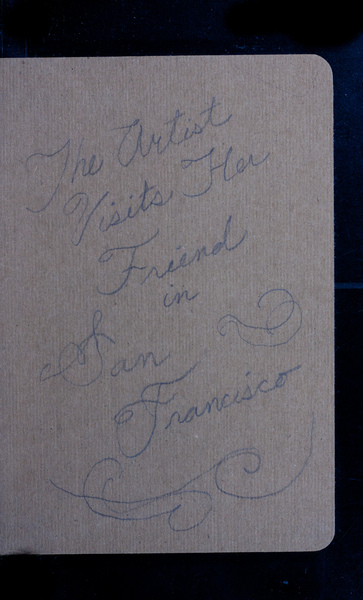 The Artist
Visits Her
Friend
in
San
Francisco